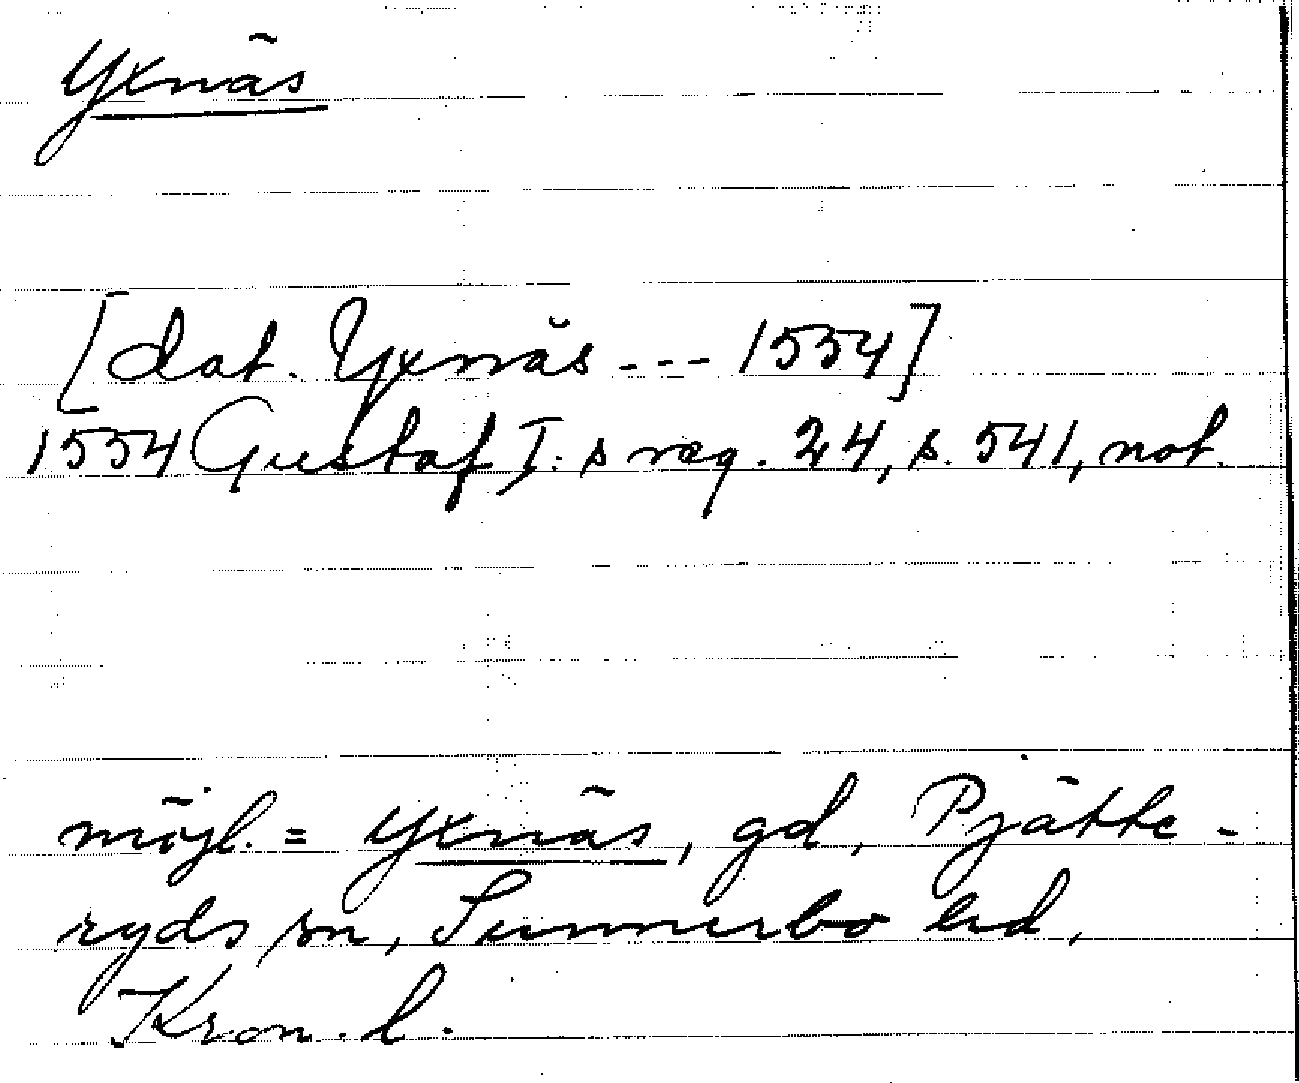 Yxnäs
[dat. Yxnäs --- 1554]
1554 Gustaf I:s reg. 24, s. 541, not.
möjl. = Yxnäs, gd, Pjätte-
ryds sn, Sunnerbo hd,
Kron. l.